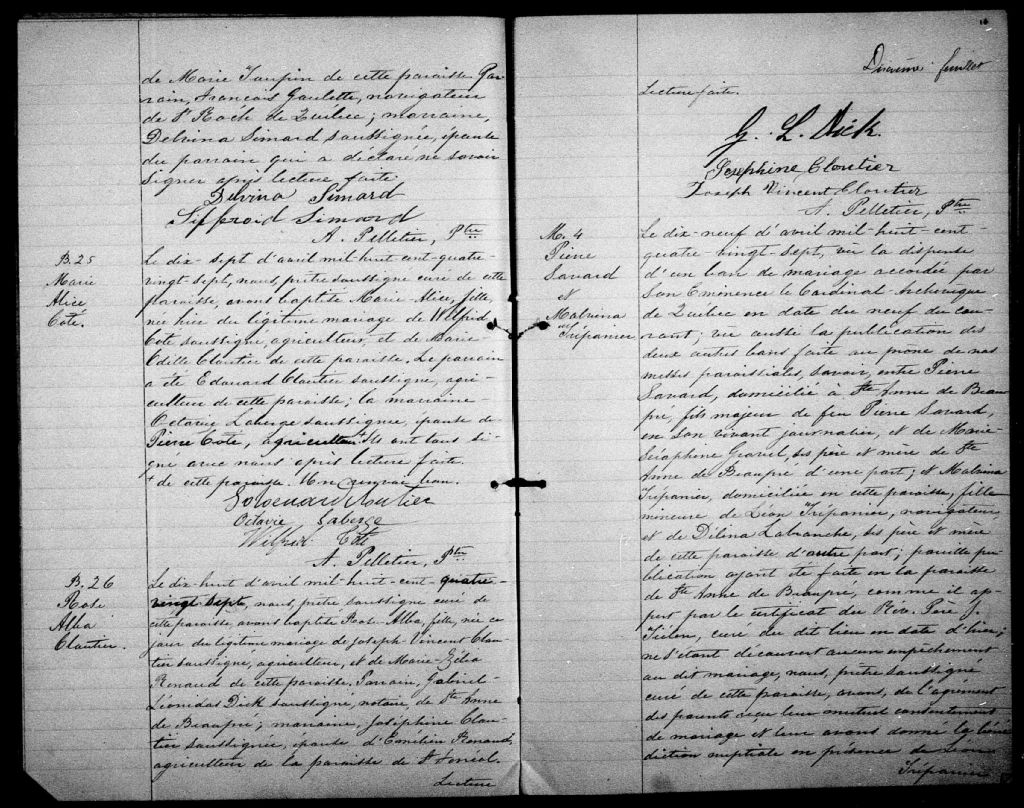 de Marie Taupin de cette paroisse Par-
rain, François Goulette, navigateur
de St Roch de Québec; marraine,
Delvina Simard soussignée, épouse
du parrain qui a déclaré ne savoir
signer après lecture faite.
Delvina Simard
Siffroid Simard
A. Pelletier, Ptre
B. 25
Marie
Alice
Coté.
Le dix-sept d'avril mil-huit cent-quatre-
vingt-sept, nous, prêtre soussigné curé de cette
paroisse, avons baptisé Marie-Alice, fille,
née hier du légitime mariage de Wilfrid
Coté soussigné, agriculteur, et de Marie-
Odille Cloutier de cette paroisse, Le parrain
a été Edouard Cloutier soussigné, agri-
culteur de cette paroisse; la marraine
Octavie Laberge soussignée, épouse de
Pierre Coté, agriculteur.+ Ils ont tous si-
gné avec nous après lecture faite.
+ de cette paroisse. Un renvoi bon.
Edouard Cloutier
Octavie Laberge
Wilfrid Coté
A. Pelletier, Ptre
B. 26
Rose
Alba
Cloutier.
Le dix-huit d'avril mil-huit-cent-quatre-
vingt sept, nous, prêtre soussigné curé de
cette paroisse, avons baptisé Rose-Alba, fille, née ce
jour du légitime mariage de Joseph-Vincent Clou-
tier soussigné, agriculteur, et de Marie-Zélia
Renaud de cette paroisse, Parrain, Gabriel-
Léonidas Dick soussigné, notaire, de Ste Anne
de Beaupré; marraine, Joséphine Clou-
tier soussignée, épouse d'Emélien Renaud,
agriculteur de la paroisse de St Féréol.
Lecture
16
Dixième feuillet
Lecture faite.
G. L. Dick.
Josephine Cloutier
Joseph Vincent Cloutier
A. Pelletier, Ptre
M. 4
Pierre
Savard
et
Malvina
Trépanier
Le dix-neuf d'avril mil-huit-cent-
quatre-vingt-sept, vu la dispense
d'un ban de mariage accordée par
Son Eminence le Cardinal-Archevêque
de Québec en date du neuf du cou-
rant; vu aussi la publication des
deux autres bans faite au prône de nos
messes paroissiales, savoir, entre Pierre
Savard, domicilié à Ste Anne de Beau-
pré, fils majeur de feu Pierre Savard,
en son vivant journalier, et de Marie-
Séraphine Gravel, ses père et mère de Ste
Anne de Beaupré d'une part; et Malvina
Trépanier, domiciliée en cette paroisse, fille
mineure de Léon Trépanier, navigateur
et de Délina Labranche, ses père et mère
de cette paroisse d'autre part; pareille pu-
blication ayant été faite en la paroisse
de Ste Anne de Beaupré, comme il ap-
pert par le certificat du Rév. Père J.
Tielen, curé du dit lieu en date d'hier;
ne s'étant découvert aucun empêchement
au dit mariage, nous, prêtre soussigné
curé de cette paroisse, avons, de l'agrément
des parents reçu leur mutuel consentement
de mariage et leur avons donné la béné-
diction nuptiale en présence de Léon
Trépanier